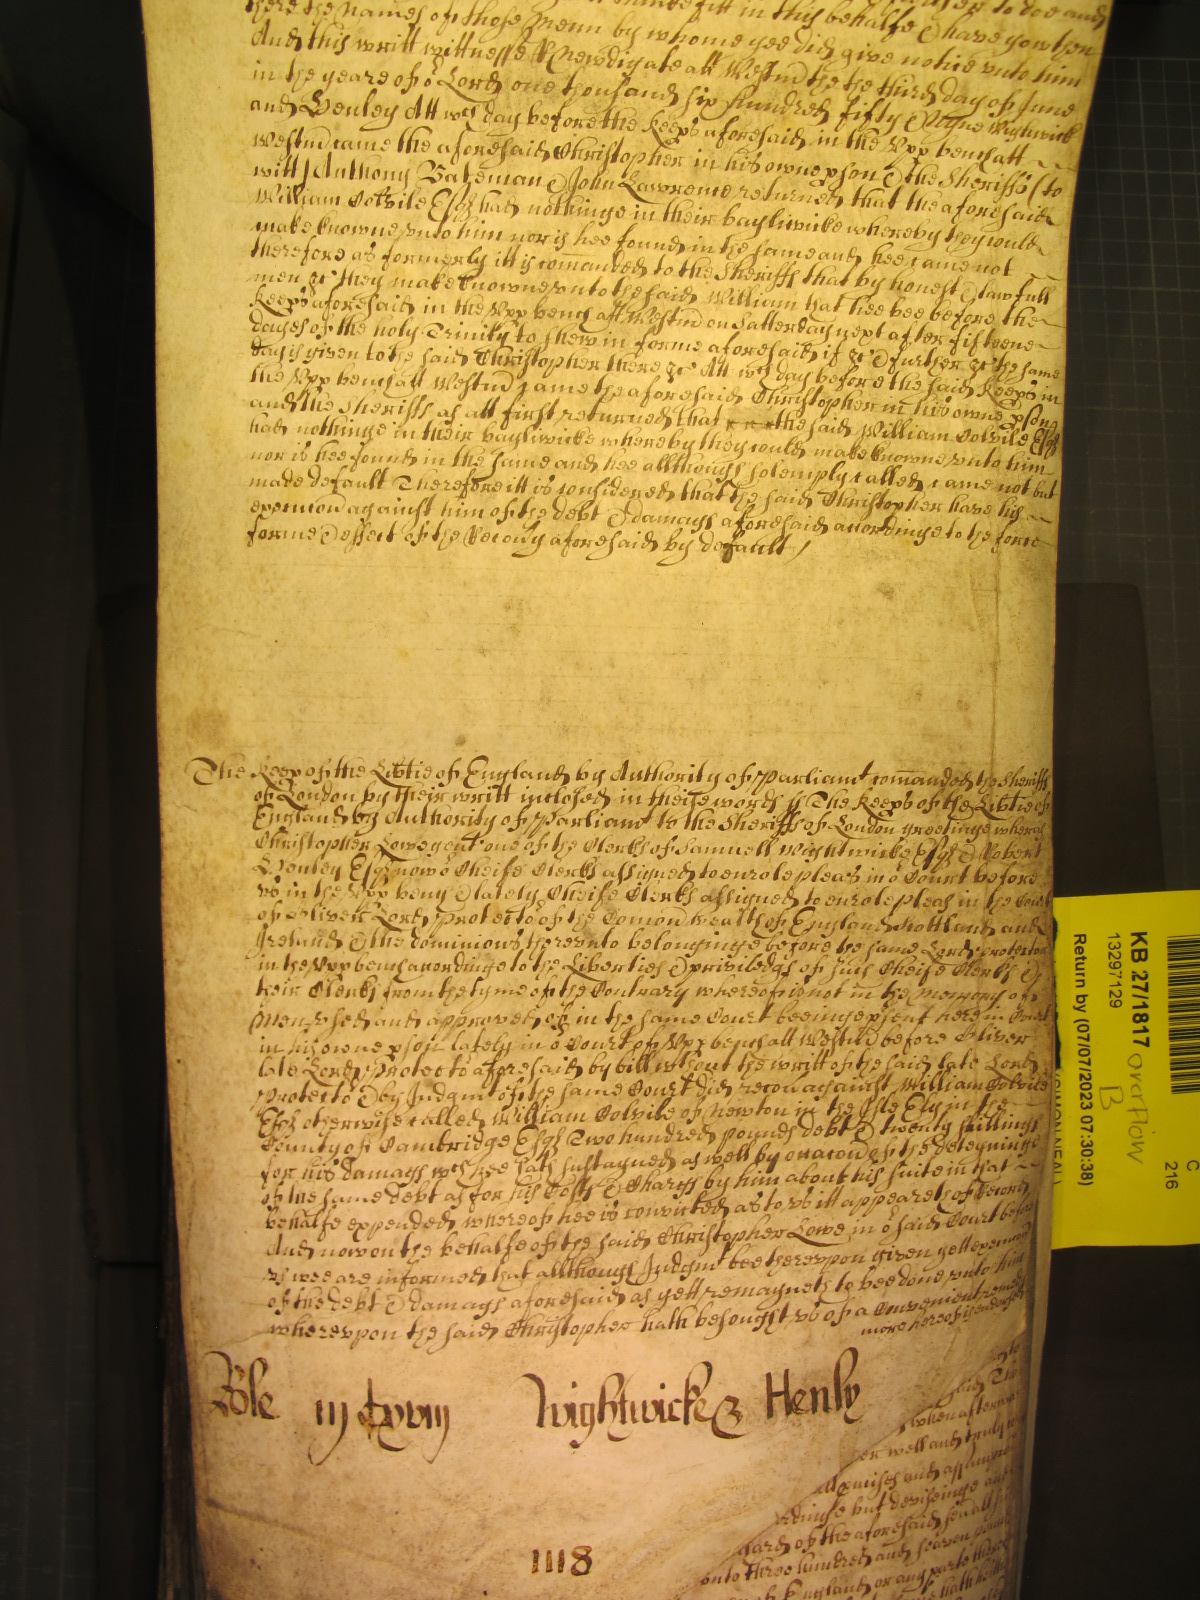 there the names of those menn by whome yee did give notice unto him
And this writt wittnesse R Newdigate att Westm̃ the the third day of June
in the yeare of oʳ Lord one thousand six hundred fifty & nyne Wightwick
and Henley Att wᶜʰ day before the Keep̃s aforesaid in the Upp̃ bench att
Westm̃ came the aforesaid Christopher in his owne p̃son & the Sheriffs (to
witt) Anthony Bateman & John Lawrence returned that the aforesaid
William Colvile Esqʳ had nothinge in their bayliwicke whereby they could
make knowne unto him nor is hee found in the same and hee came not
therefore as formerly itt is com̃anded to the Sheriffs that by honest & lawfull
men &c they make knowne unto the said William that hee bee before the
Keep̃s aforesaid in the Upp̃ bench att Westm̃ on Satterday next after fifteene
dayes of the holy Trinity to shew in forme aforesaid if &c & further &c the same
day is given to the said Christopher there &c Att wᶜʰ day before the said Keep̃s in
the Upp̃ bench att Westm̃ came the aforesaid Christopher in his owne p̃son
and the Sheriffs as att first returned that the said William Colvile Esqʳ
had nothinge in their bayliwicke whereby they could make knowne unto him
nor is hee found in the same and hee allthough solemply called came not but
made default Therefore itt is considered that the said Christopher have his
execuc̃on against him of the debt & damages aforesaid accordinge to the force
forme & effect of the Recoṽy aforesaid by default /
The Keep̃s of the Lib̃tie of England by Authority of Parliamᵗ com̃anded the Sheriffs
of London by their writt inclosed in theise words ss The Keep̃s of the Lib̃tie of
England by Authority of Parliamᵗ to the Sheriffs of London greetinge whereas
Christopher Lowe gent one of the Clerks of Samuell Wightwicke Esqʳ & Robert
Henley Esqʳ now oʳ Cheife Clerks assigned to enrole pleas in oʳ Court before
us in the Upp̃ bench & lately Cheife Clerks assigned to enrole pleas in the Court
of Oliver Lord Protectoʳ of the Com̃on wealth of England Scottland and
Ireland & the dominions thereunto belonginge before the same Lord Protector
in the Upp̃ bench accordinge to the Liberties & priviledges of such Cheife Clerks &
their Clerks from the tyme of the Contrary whereof is not in the memory of
Men used and approved of in the same Court beeinge p̃sent here in Court
in his owne p̃son lately in oʳ Court of Upp̃ bench att Westm̃ before Oliver
late Lord Protectoʳ aforesaid by bill wᵗʰout the writt of the said late Lord
Protectoʳ & by Judgmᵗ of the same Court did recoṽ against William Colvile
Esqʳ otherwise called William Colvile of Newton in the Isle Ely in the
County of Cambridge Esqʳ Two hundred pounds debt & twenty shillings
for his damages wᶜʰ hee hath sustayned as well by occac̃on of the deteyninge
of the same debt as for his Costs & Charges by him about his suite in that
behalfe expended whereof hee is convicted as to us itt appeareth of Record
And now on the behalfe of the said Christopher Lowe in oʳ said Court before
us wee are informed that allthough Judgmᵗ bee thereupon given yett execuc̃on
of the debt & damages aforesaid as yett remayneth to bee done unto him
whereupon the said Christopher hath besought us of a Convenient remedy
more hereof is endorsed
Wightwicke & Henly
1118
when afterw
er well and truly
p̃mises and assump
rdinge but deviseinge and
of the aforesaid
onto three hundred and seaven pounds
of England or any parte thereof
KB 27/1817 overflow B
13297129
Return by (07/07/2023 07:30:38)
C
216